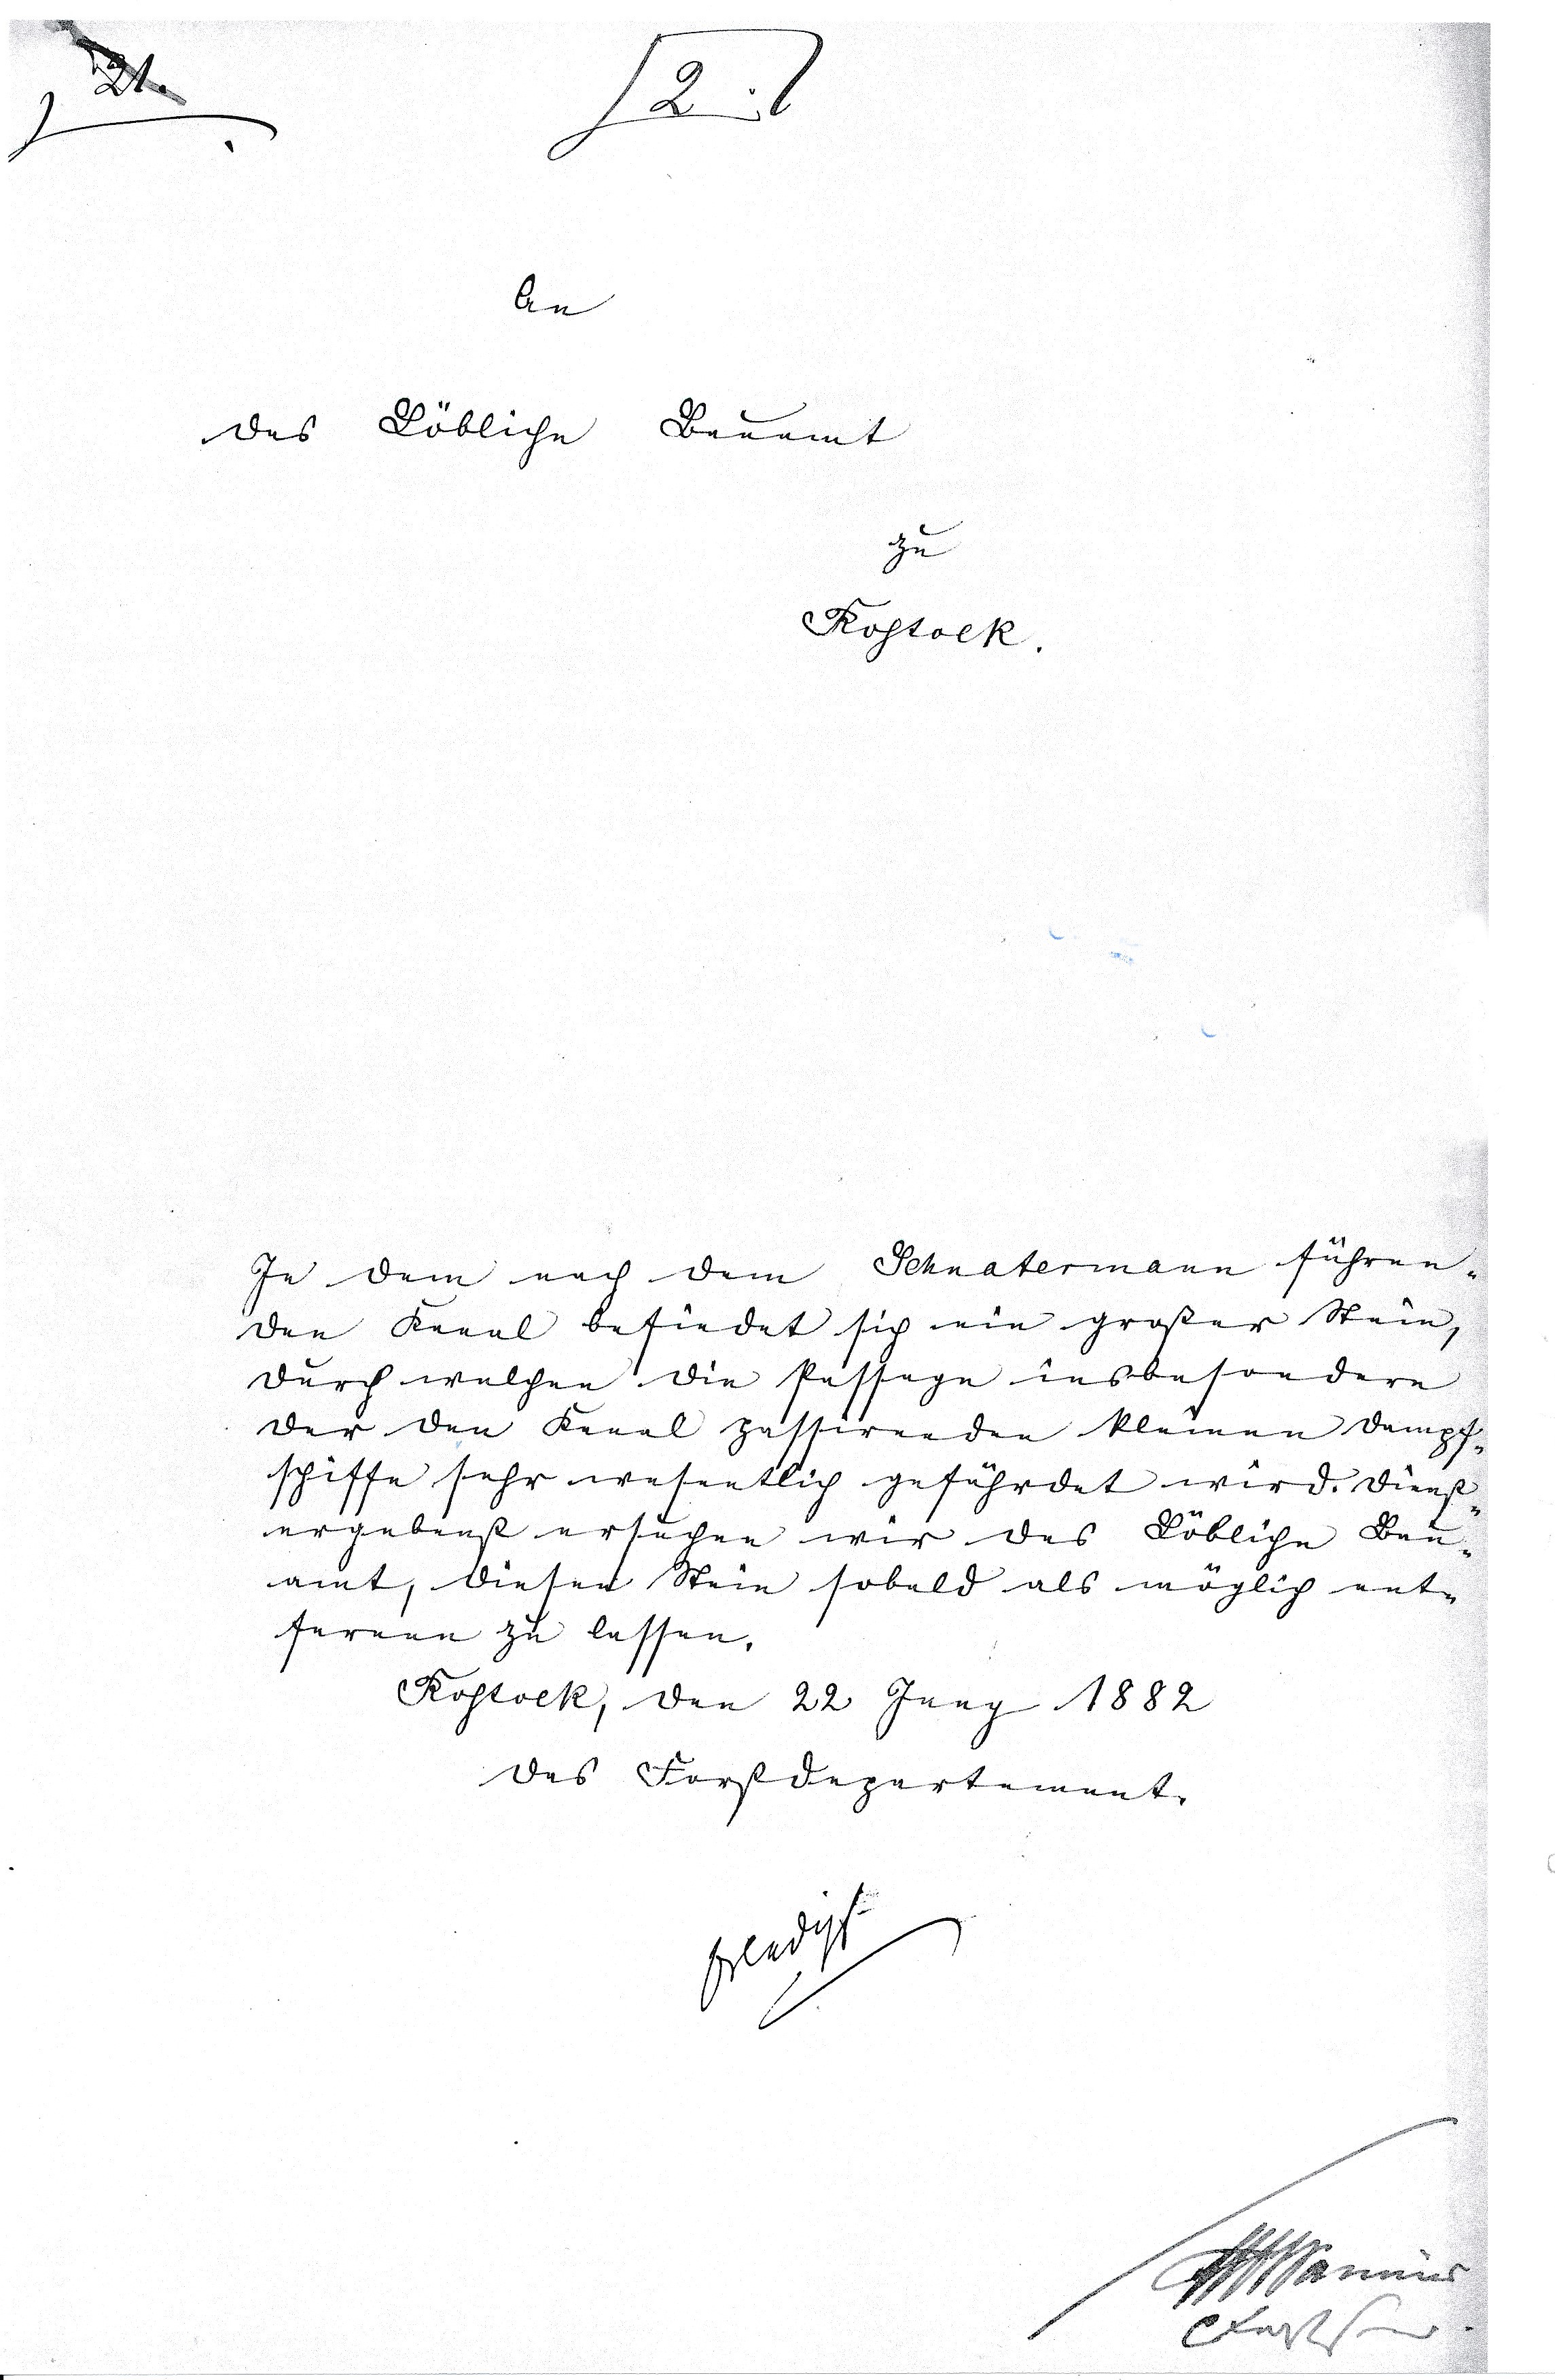 21.
2.
An
das Löbliche Bauamt
zu
Rostock.
In dem nach dem Schnatermann führen-
den Kanal befindet sich ein großer Stein,
durch welchen die Passage insbesondere
der den Kanal passirenden kleinen Dampf-
schiffe sehr wesentlich gefährdet wird. Dienst-
ergebenst ersuchen wir das Löbliche Bau-
amt, diesen Stein sobald als möglich ent-
fernen zu lassen.
Rostock, den 22 Juny 1882
Das Forstdepartement.
Erledigt